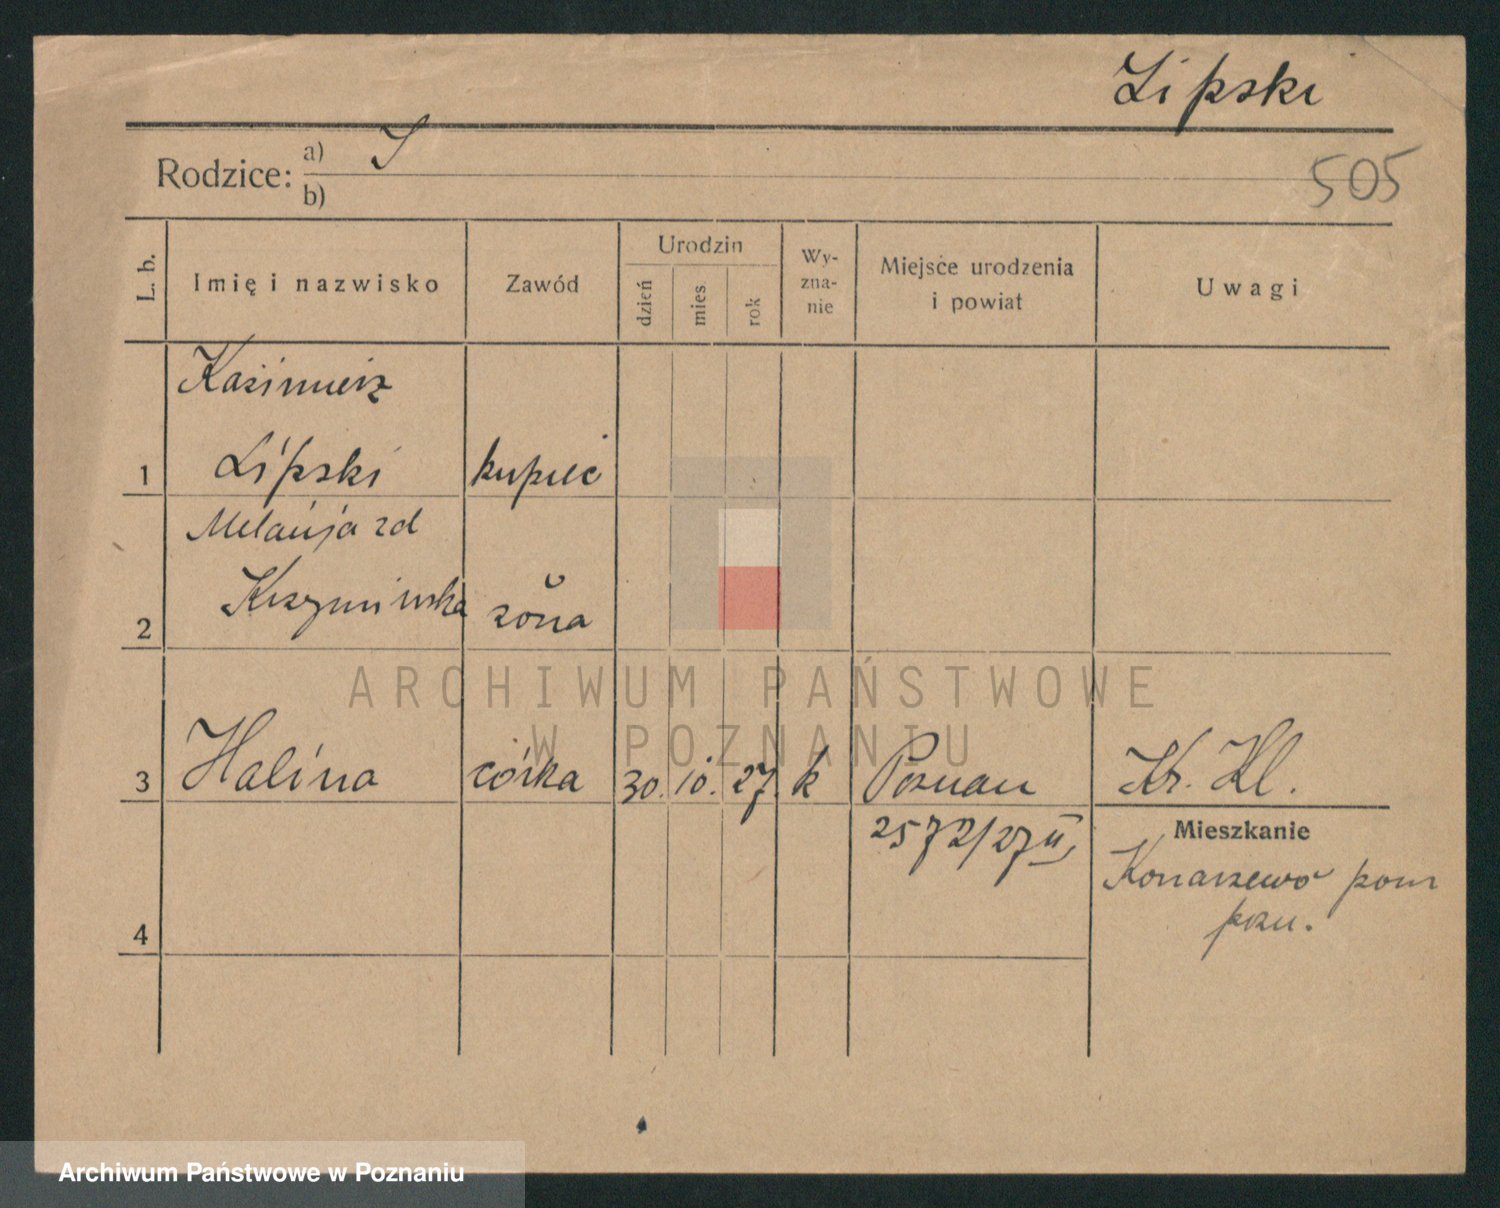 Lipski
Rodzice: a)
b)
505
L. b.
Imię i nazwisko
Zawód
Urodzin
dzień
mies
rok
Wy-
zna-
nie
Miejsce urodzenia
i powiat
Uwagi
Kazimierz
1 Lipski kupiec
Melanja zd
2 żona
3 Halina córka 30. 10. 27. k Poznań Kr. Kl.
2572/27 II
Mieszkanie
Konarzewo pow
pzn.
4
ARCHIWUM PAŃSTWOWE
W POZNANIU
Archiwum Państwowe w Poznaniu